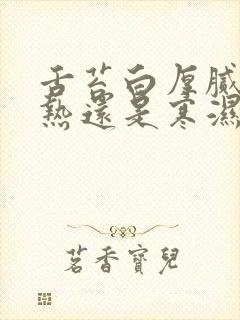 舌苔白厚膩
熱還是寒濕
茗香寶兒